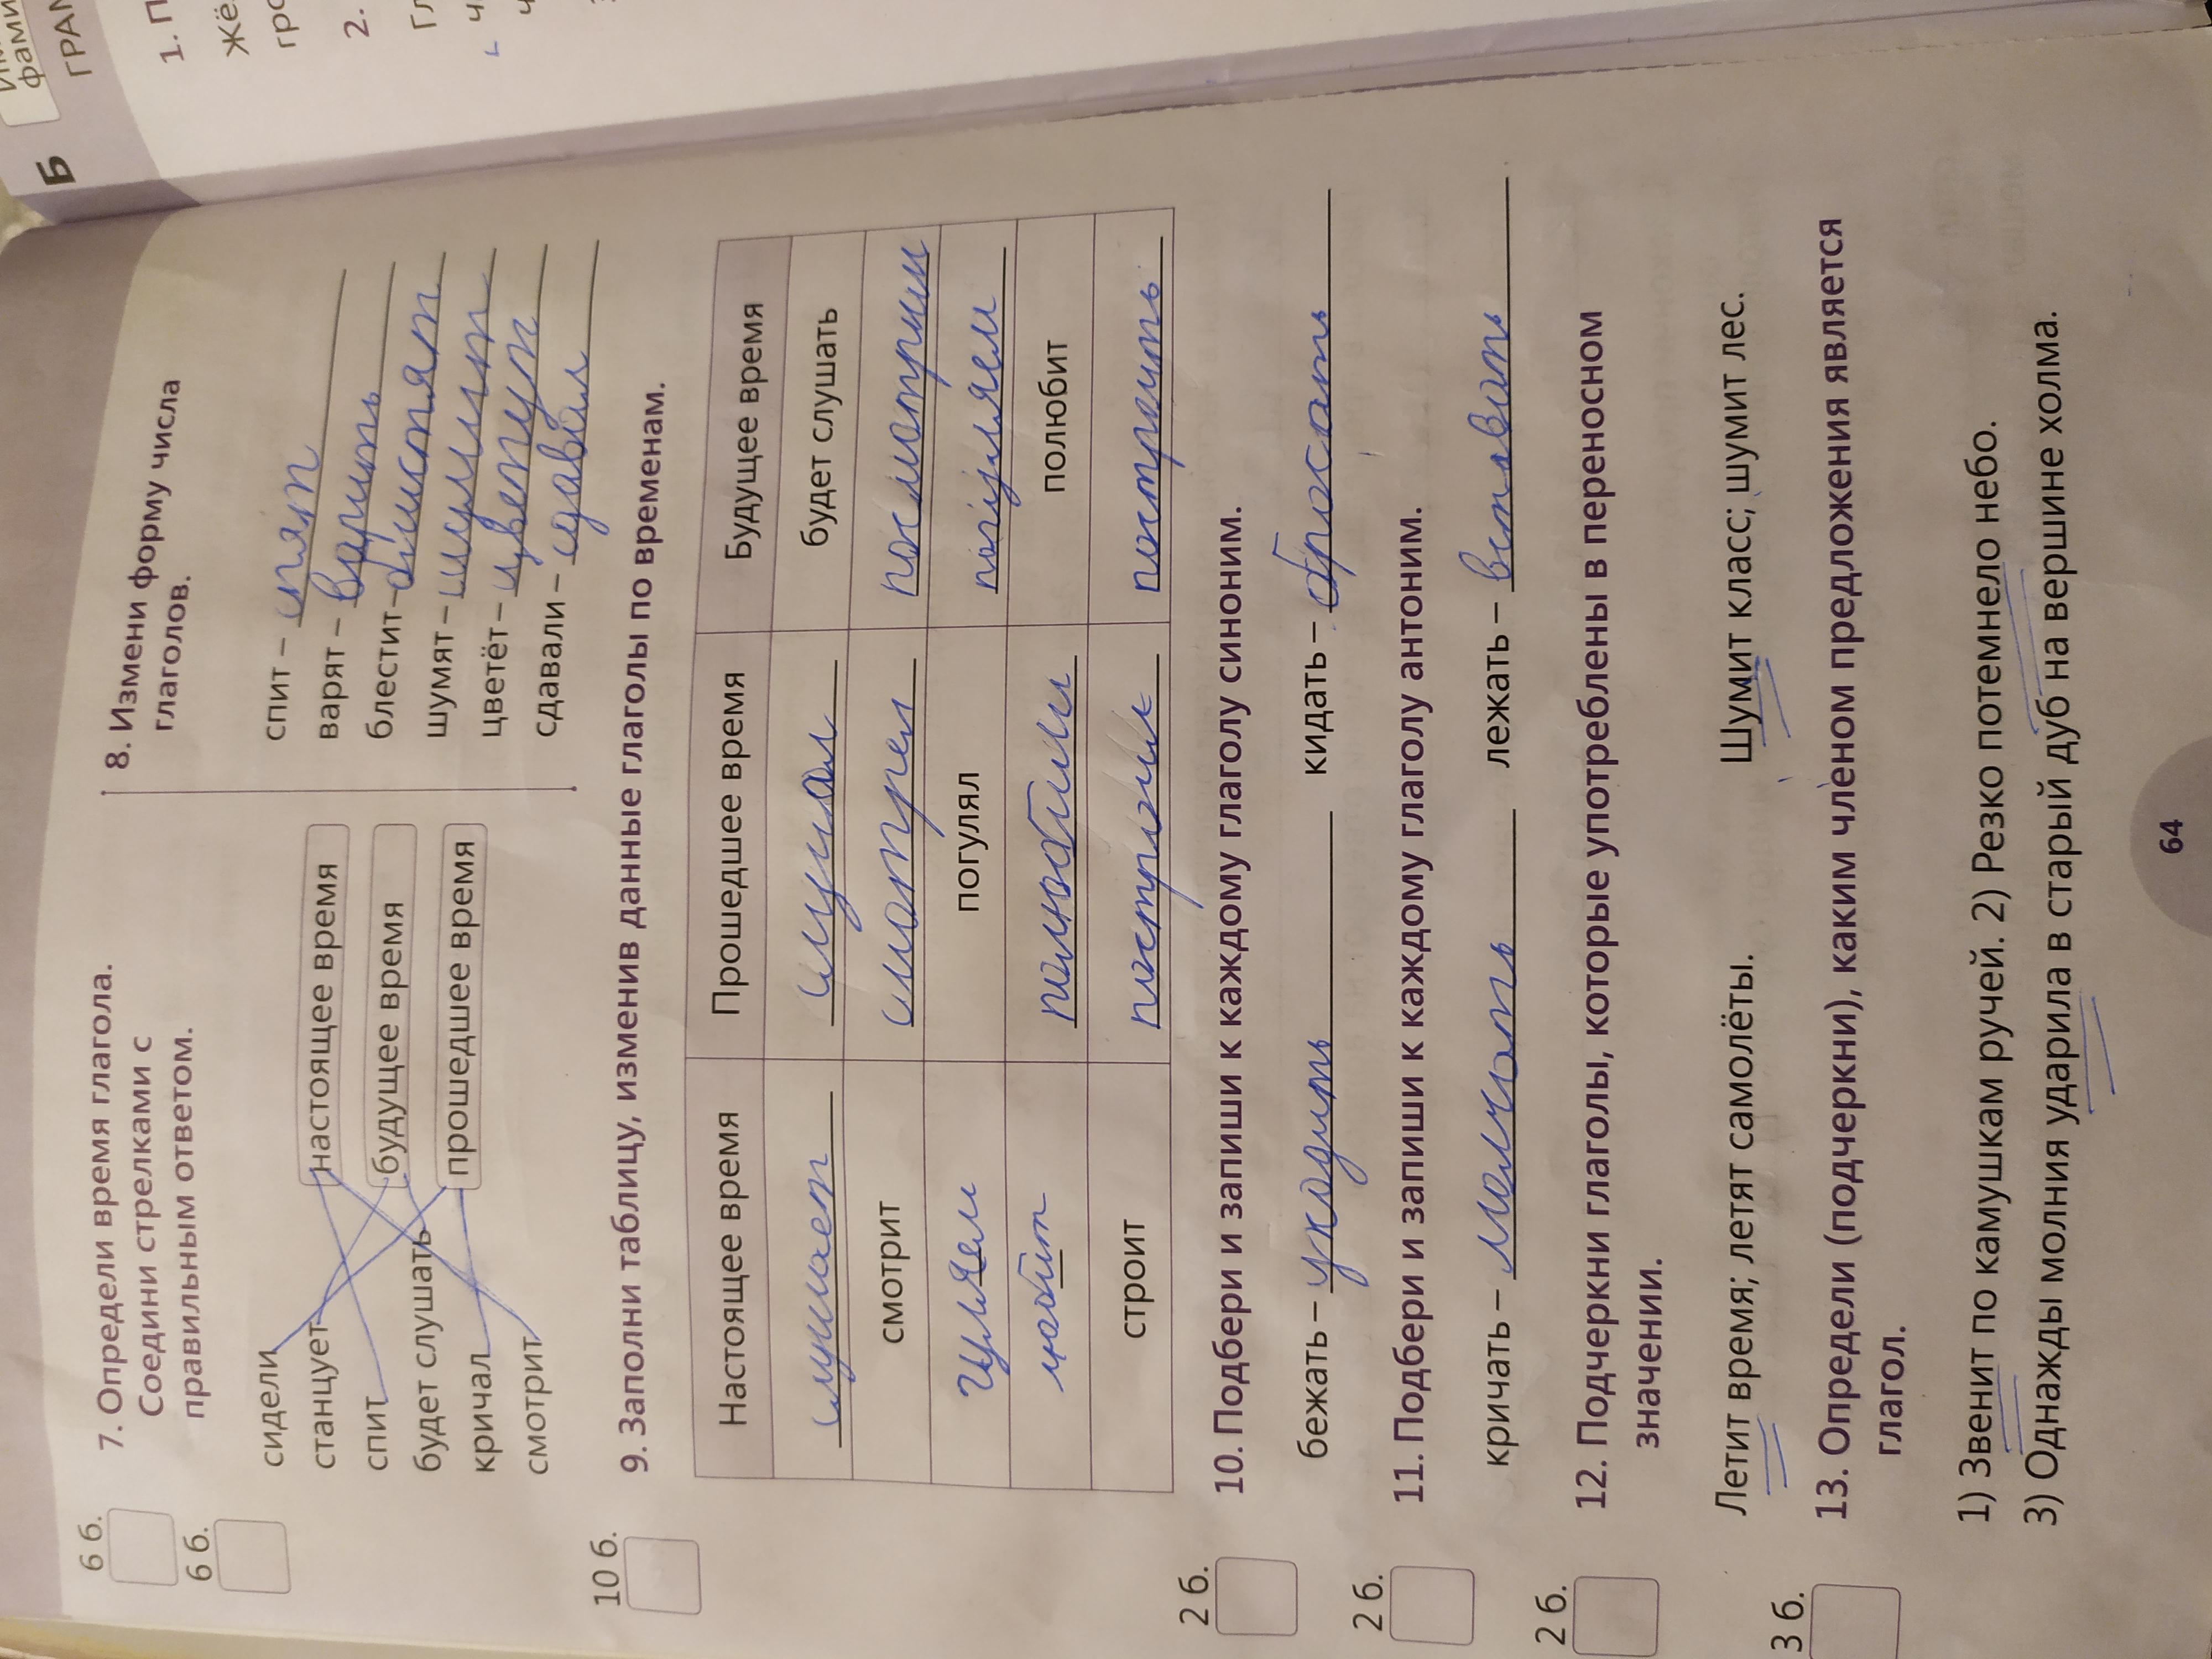 Б
фами
ГРАМ
1. П
жё
гро
2.
Гл
6 б.
7. Определи время глагола.
Соедини стрелками с
правильным ответом.
сидели
станцует
спит
будет слушать
кричал
смотрит
настоящее время
будущее время
прошедшее время
6 б.
8. Измени форму числа
глаголов.
спит – спят
варят – варить
блестит – блистят
шумят – шумит
цветёт – цветут
сдавали – сдавал
10 б.
9. Заполни таблицу, изменив данные глаголы по временам.
Настоящее время Прошедшее время Будущее время
слушает слушал будет слушать
смотрит смотрел посмотрим
гуляем погулял погуляем
любит полюбили полюбит
строит построил построить
2 б.
10. Подбери и запиши к каждому глаголу синоним.
бежать – уходить кидать – бросать
2 б.
11. Подбери и запиши к каждому глаголу антоним.
кричать – молчать лежать – вставать
2 б.
12. Подчеркни глаголы, которые употреблены в переносном
значении.
Летит время; летят самолёты. Шумит класс; шумит лес.
3 б.
13. Определи (подчеркни), каким членом предложения является
глагол.
1) Звенит по камушкам ручей. 2) Резко потемнело небо.
3) Однажды молния ударила в старый дуб на вершине холма.
64